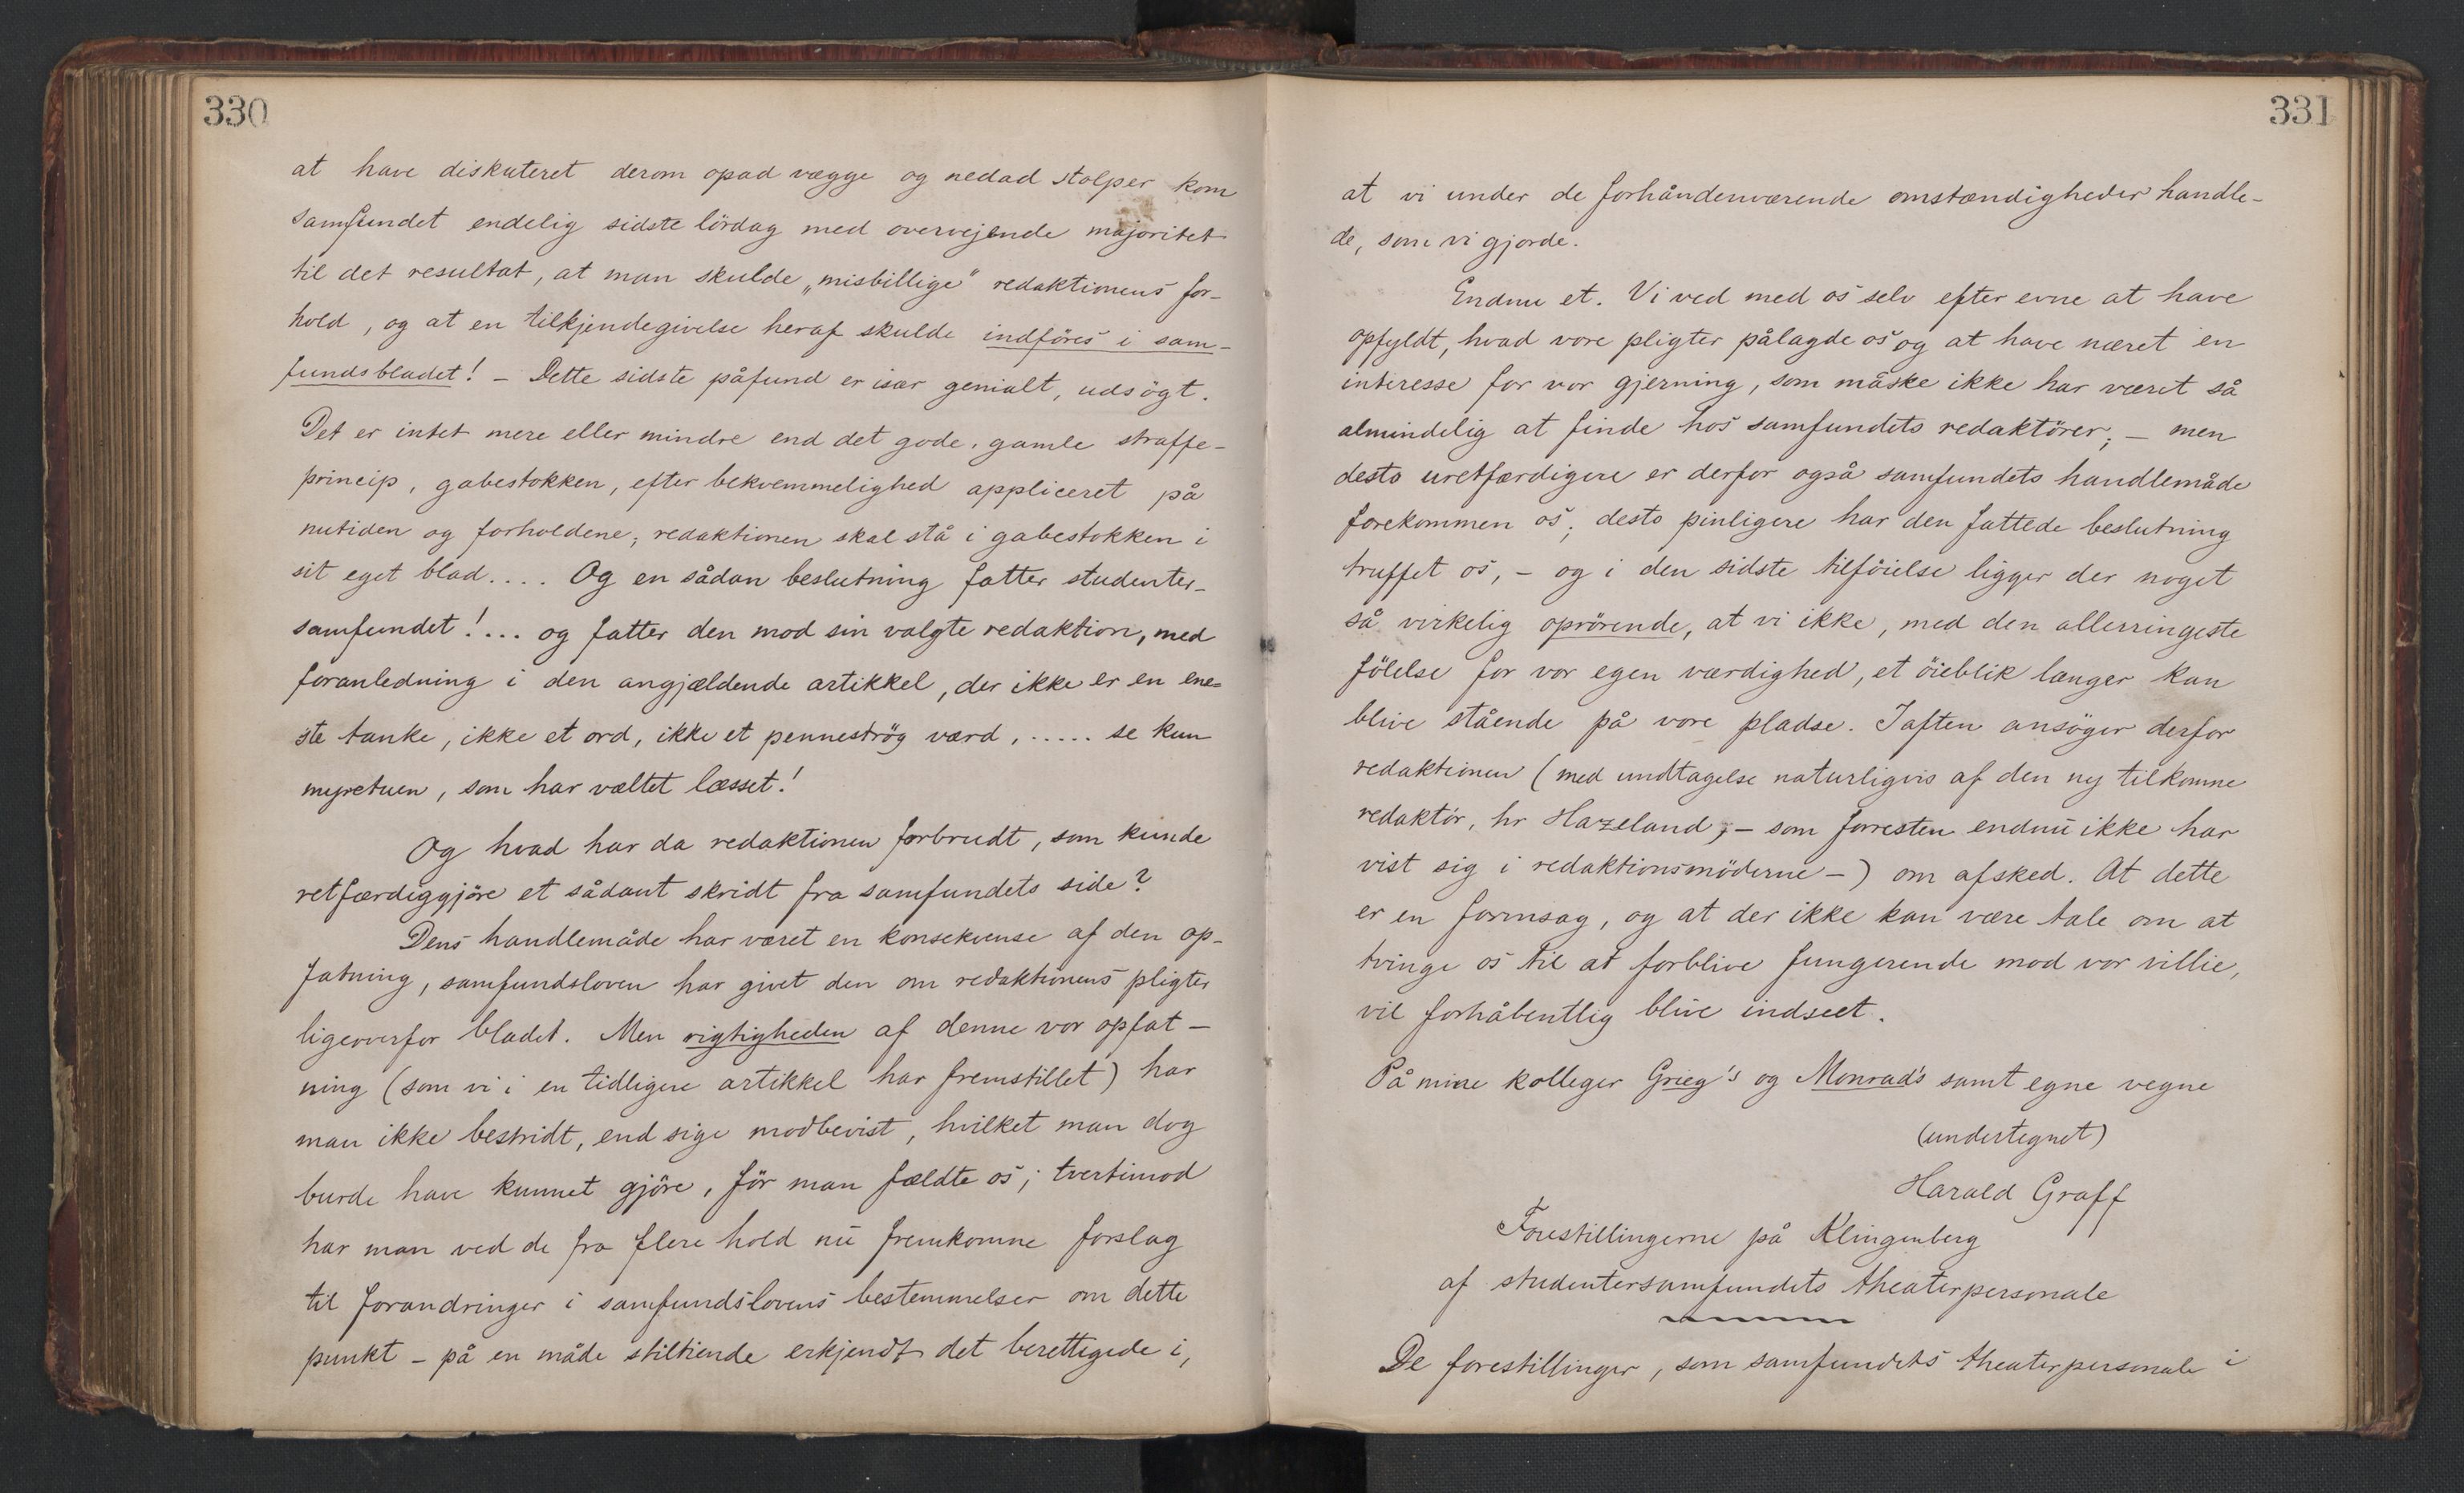 330
at have diskuteret derom opad vægge og nedad stolper kom
samfundet endelig sidste lördag med overvejende majoritet
til det resultat, at man skulde „misbillige" redaktionens for-
hold, og at en tilkjendegivelse heraf skulde indföres i sam-
fundsbladet! – Dette sidste påfund er især genialt, udsögt.
Det er intet mere eller mindre end det gode, gamle straffe-
princip, gabestokken, efter bekvemmelighed appliceret på
nutiden og forholdene; redaktionen skal stå i gabestokken i
sit eget blad.... Og en sådan beslutning fatter studenter-
samfundet!... og fatter den mod sin valgte redaktion, med
foranledning i den angjældende artikkel, der ikke er en ene-
ste tanke, ikke et ord, ikke et penneströg værd, ..... se kun
myretuen, som har væltet læsset!
Og hvad har da redaktionen forbrudt, som kunde
retfærdiggjöre et sådant skridt fra samfundets side?
Dens handlemåde har været en konsekvense af den op-
fatning, samfundsloven har givet den om redaktionens pligter
ligeoverfor bladet. Men rigtigheden af denne vor opfat-
ning (som vi i en tidligere artikkel har fremstillet) har
man ikke bestridt, end sige modbevist, hvilket man dog
burde have kunnet gjöre, för man fældte os; tvertimod
har man ved de fra flere hold nu fremkomne forslag
til forandringer i samfundslovens bestemmelser om dette
punkt – på en måde stiltiende erkjendt det berettigede i,
331
at vi under de forhåndenværende omstændigheder handle-
de, som vi gjorde.
Endnu et. Vi ved med os selv efter evne at have
opfyldt, hvad vore pligter pålagde os og at have næret en
interesse for vor gjerning, som måske ikke har været så
almindelig at finde hos samfundets redaktörer; – men
desto uretfærdigere er derfor også samfundets handlemåde
forekommen os; desto pinligere har den fattede beslutning
truffet os, – og i den sidste tilföielse ligger der noget
så virkelig oprörende, at vi ikke, med den allerringeste
fölelse for vor egen værdighed, et öieblik længer kan
blive stående på vore pladse. Iaften ansöger derfor
redaktionen (med undtagelse naturligvis af den ny tilkomne
redaktör, hr Hazeland, – som forresten endnu ikke har
vist sig i redaktionsmöderne –) om afsked. At dette
er en formsag, og at der ikke kan være tale om at
tvinge os til at forblive fungerende mod vor villie,
vil forhåbentlig blive indseet.
På mine kolleger Grieg's og Monrad's samt egne vegne
(undertegnet)
Harald Graff
Forestillingerne på Klingenberg
af studentersamfundets theaterpersonale
De forestillinger, som samfundets theaterpersonale i